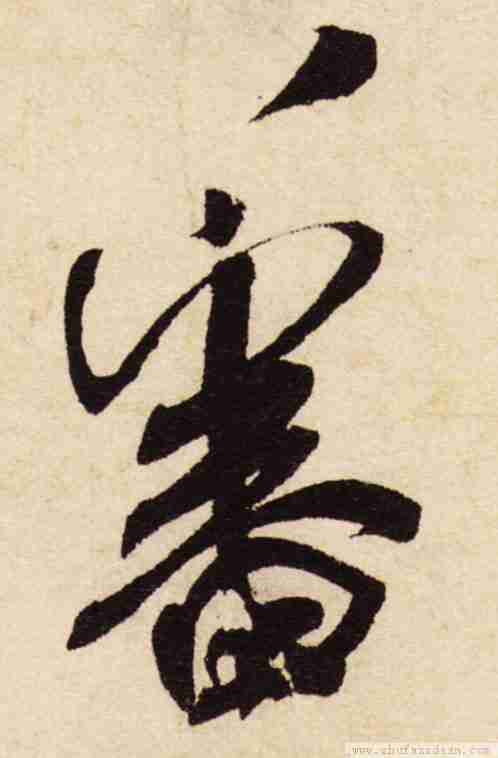 審
www.shufazidian.com